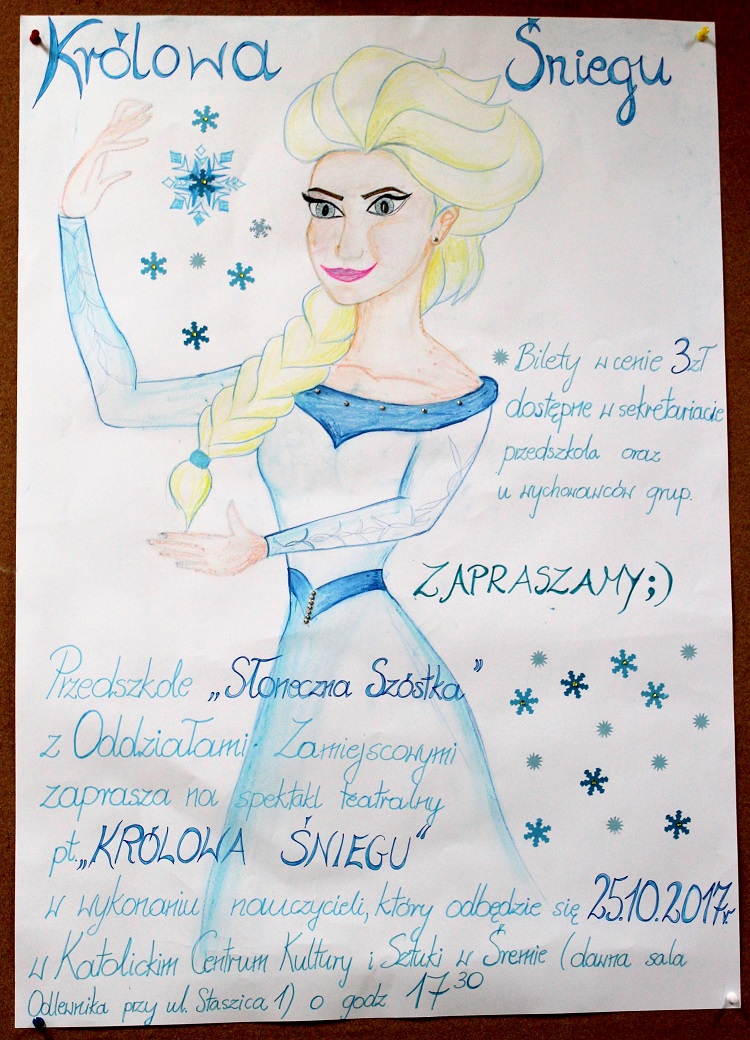 Królowa Śniegu
Bilety w cenie 3zł
dostępne w sekretariacie
przedszkola oraz
u wychowawców grup.
ZAPRASZAMY;)
Przedszkole „Słoneczna Szóstka”
z Oddziałami Zamiejscowymi
zaprasza na spektakl teatralny
pt. „KRÓLOWA ŚNIEGU”
w wykonaniu nauczycieli, który odbędzie się 25.10.2017r.
w Katolickim Centrum Kultury i Sztuki w Śremie (dawna sala
Odlewnika przy ul. Staszica 1) o godz. 17³⁰